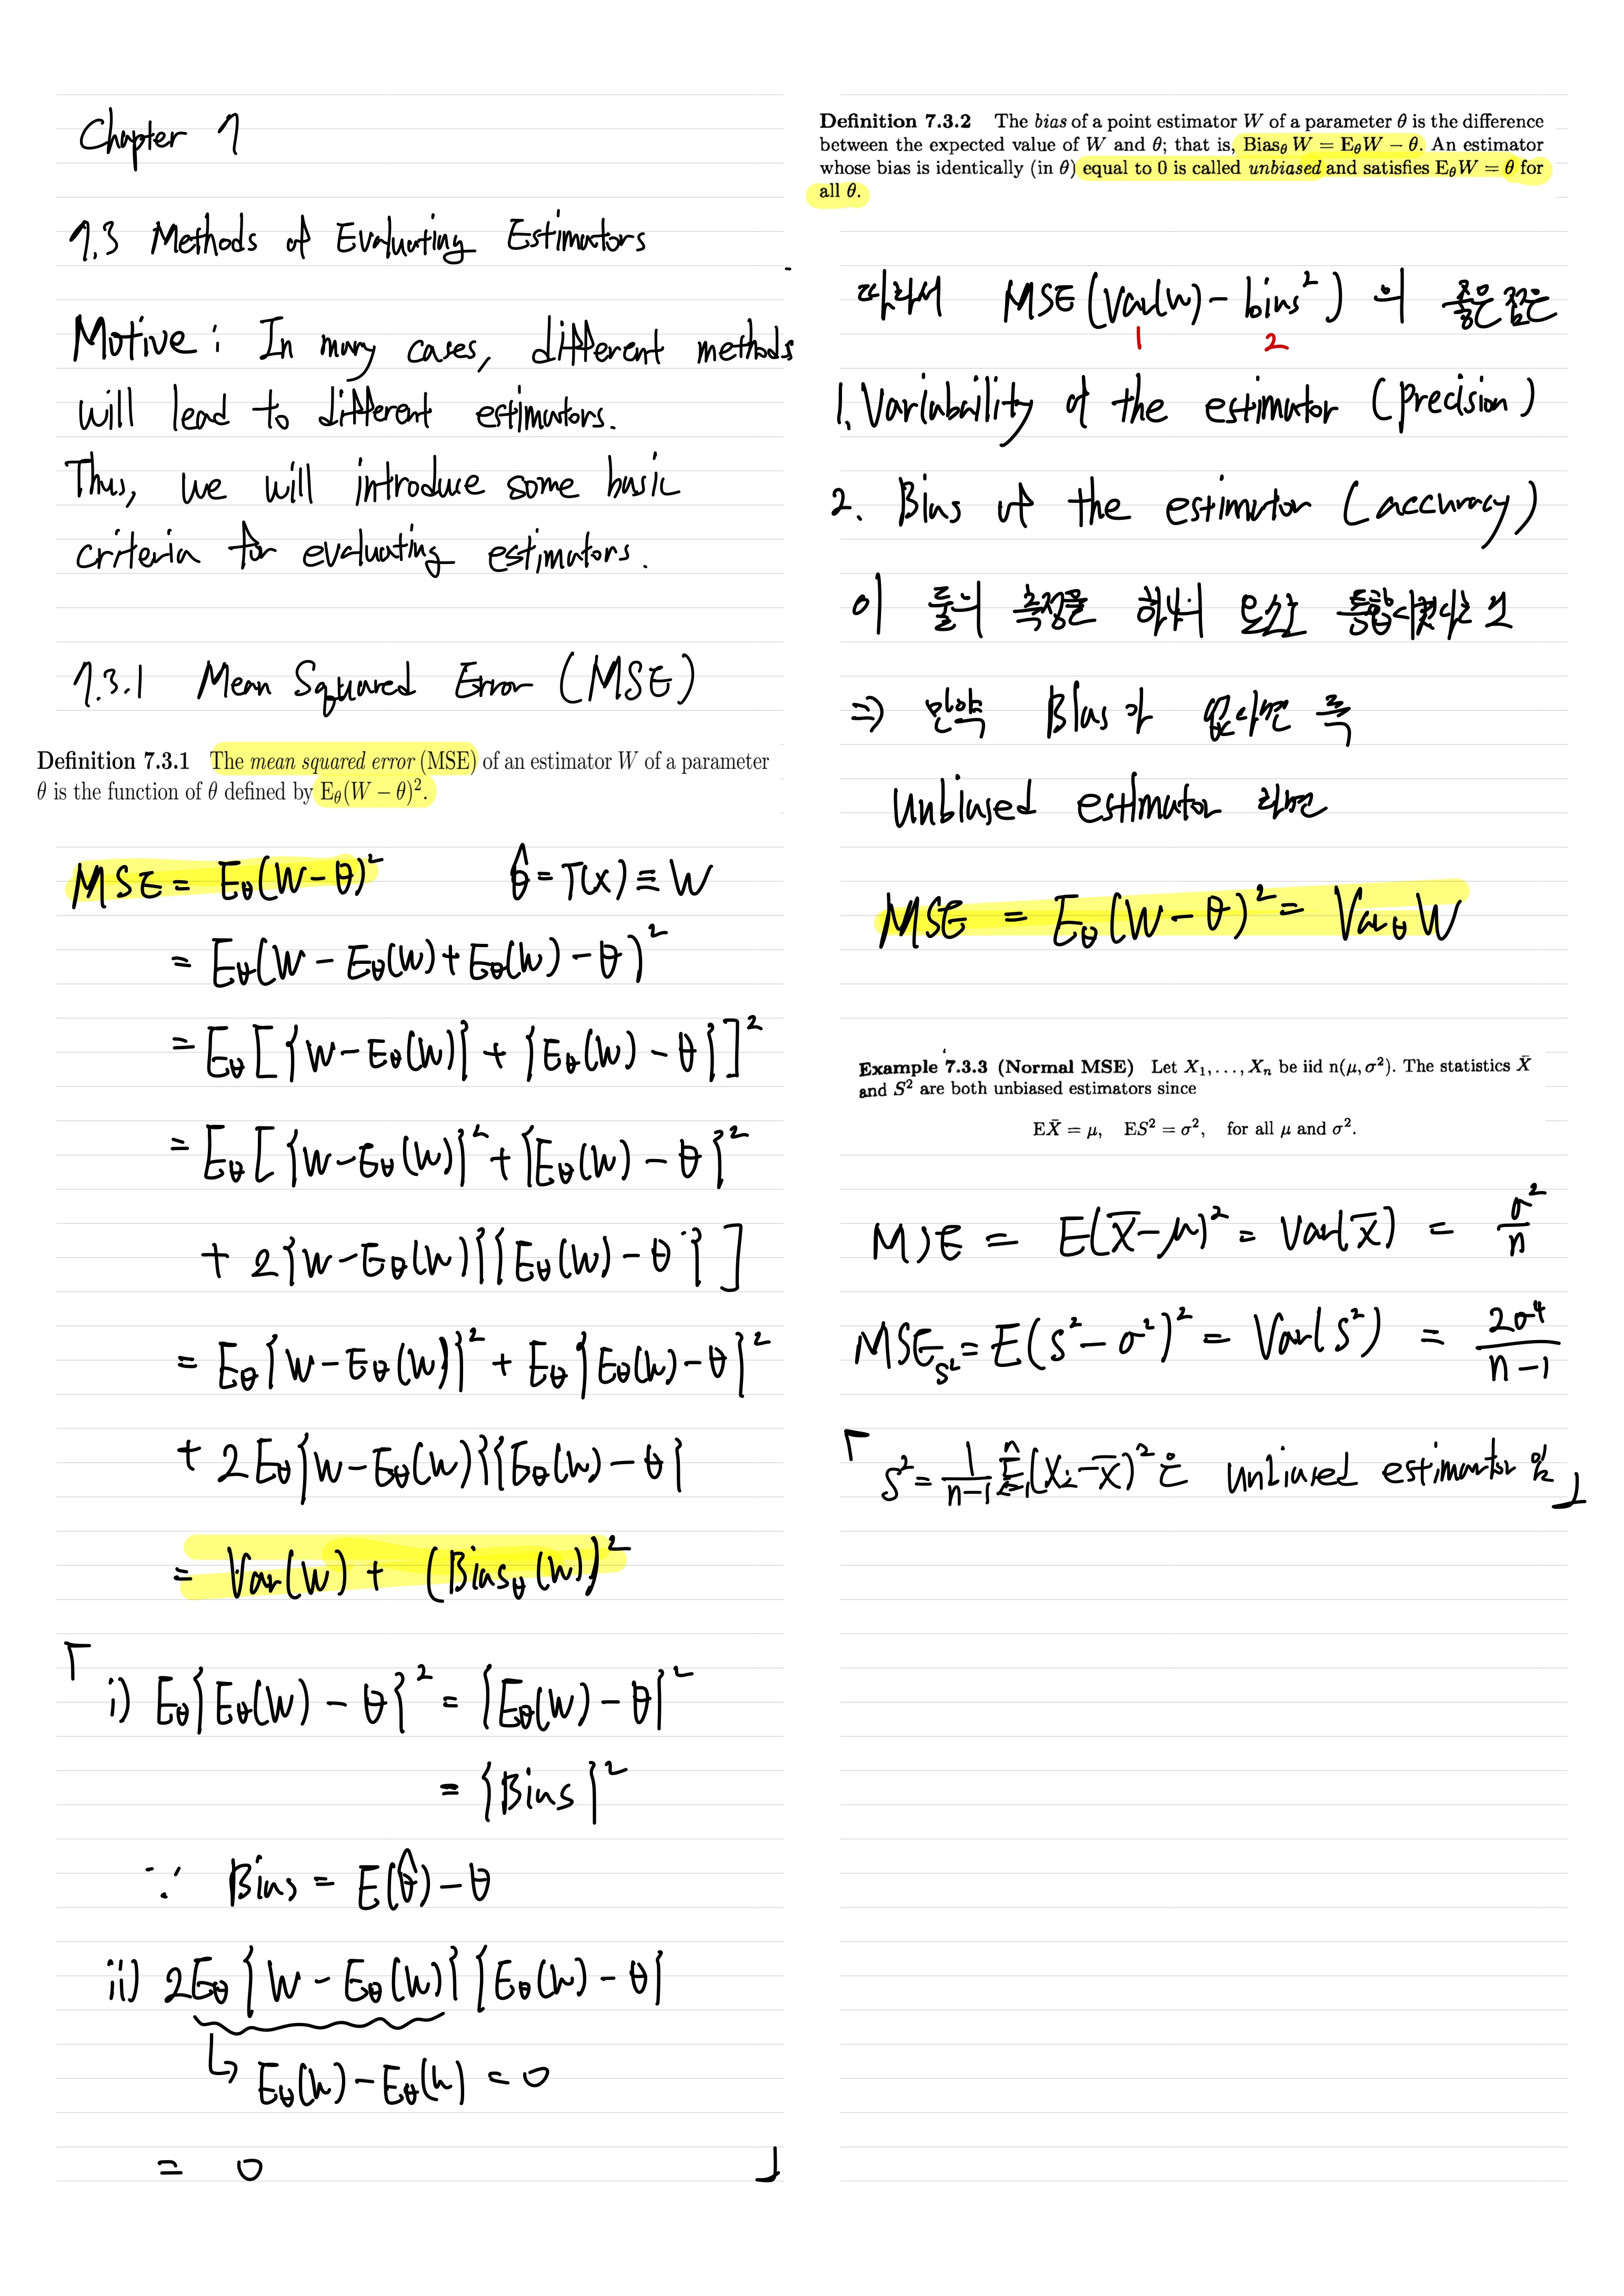 Chapter 7
7.3 Methods of Evaluating Estimators
Motive : In many cases, different methods
will lead to different estimators.
Thus, we will introduce some basic
criteria for evaluating estimators.
7.3.1 Mean Squared Error (MSE)
Definition 7.3.1 The mean squared error (MSE) of an estimator W of a parameter
θ is the function of θ defined by E_θ(W − θ)².
MSE = E_θ(W − θ)² θ̂ = T(x) ≡ W
= E_θ(W − E_θ(W) + E_θ(W) − θ)²
= E_θ[{W − E_θ(W)} + {E_θ(W) − θ}]²
= E_θ[{W − E_θ(W)}² + {E_θ(W) − θ}²
+ 2{W − E_θ(W)}{E_θ(W) − θ}]
= E_θ{W − E_θ(W)}² + E_θ{E_θ(W) − θ}²
+ 2E_θ{W − E_θ(W)}{E_θ(W) − θ}
= Var(W) + (Bias_θ(W))²
「 i) E_θ{E_θ(W) − θ}² = {E_θ(W) − θ}²
= {Bias}²
∵ Bias = E(θ̂) − θ
ii) 2E_θ{W − E_θ(W)}{E_θ(W) − θ}
↳ E_θ(W) − E_θ(W) = 0
= 0 」
Definition 7.3.2 The bias of a point estimator W of a parameter θ is the difference
between the expected value of W and θ; that is, Bias_θ W = E_θW − θ. An estimator
whose bias is identically (in θ) equal to 0 is called unbiased and satisfies E_θW = θ for
all θ.
따라서 MSE (Var(W) − bias²) 의 좋은 점은
1 2
1. Variabaility of the estimator (precision)
2. Bias of the estimator (accuracy)
이 둘의 측정을 하나의 요소로 통합시켰다는 것
⇒ 만약 Bias가 없다면 즉
Unbiased estimator 라면
MSE = E_θ(W − θ)² = Var_θ W
Example 7.3.3 (Normal MSE) Let X₁, . . . , Xₙ be iid n(μ, σ²). The statistics X̄
and S² are both unbiased estimators since
EX̄ = μ, ES² = σ², for all μ and σ².
MSE = E(X̄ − μ)² = Var(X̄) = σ²/n
MSE_S² = E(S² − σ²)² = Var(S²) = 2σ⁴/(n−1)
「 S² = 1/(n−1) Σⁿᵢ₌₁(Xᵢ − X̄)² 는 unbiased estimator 임 」